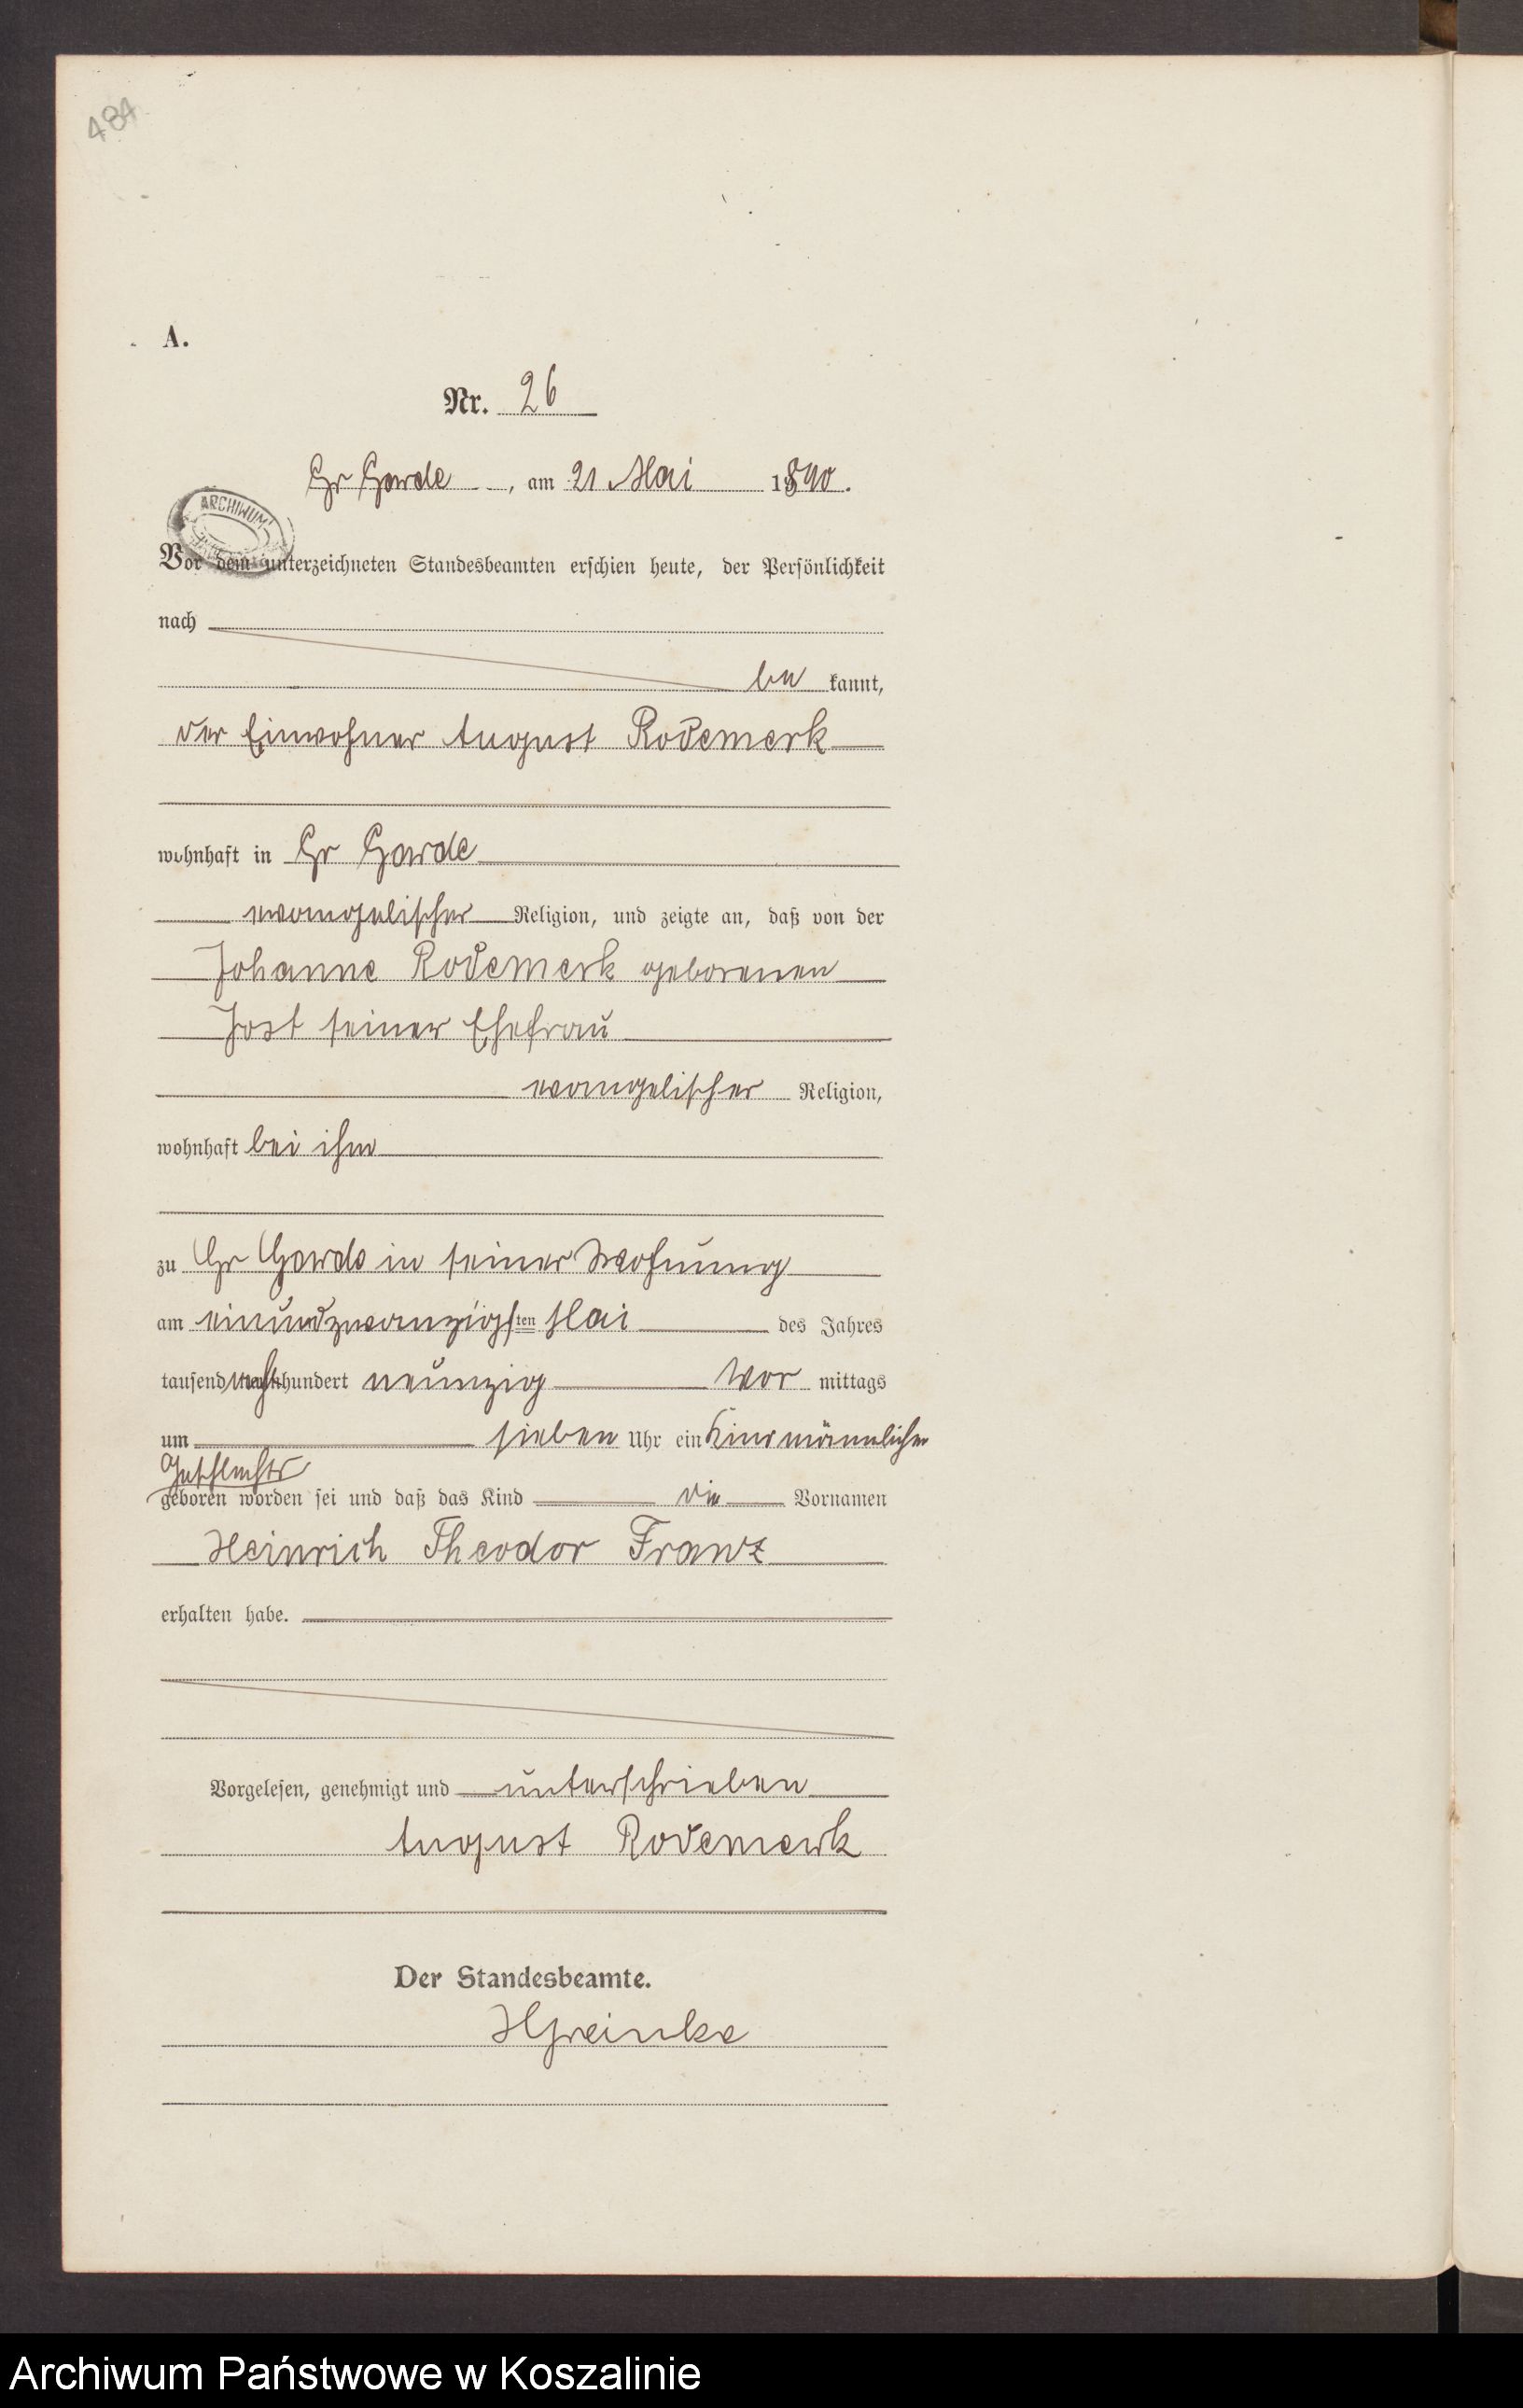 484
A.
Nr. 26
Gr Garde, am 21 Mai 1890.
ARCHIWUM
Vor dem unterzeichneten Standesbeamten erschien heute, der Persönlichkeit
nach
be kannt,
der Einwohner August Rodemerk
wohnhaft in Gr Garde
evangelischer Religion, und zeigte an, daß von der
Johanne Rodemerk geborenen
Jost seiner Ehefrau
evangelischer Religion,
wohnhaft bei ihm
zu Gr Garde in seiner Wohnung
am einundzwanzigsten Mai des Jahres
tausend achthundert neunzig Vor mittags
um sieben Uhr ein Kind männlichen
Geschlechts
geboren worden sei und daß das Kind die Vornamen
Heinrich Theodor Franz
erhalten habe.
Vorgelesen, genehmigt und unterschrieben
August Rodemerk
Der Standesbeamte.
HGreinke
Archiwum Państwowe w Koszalinie